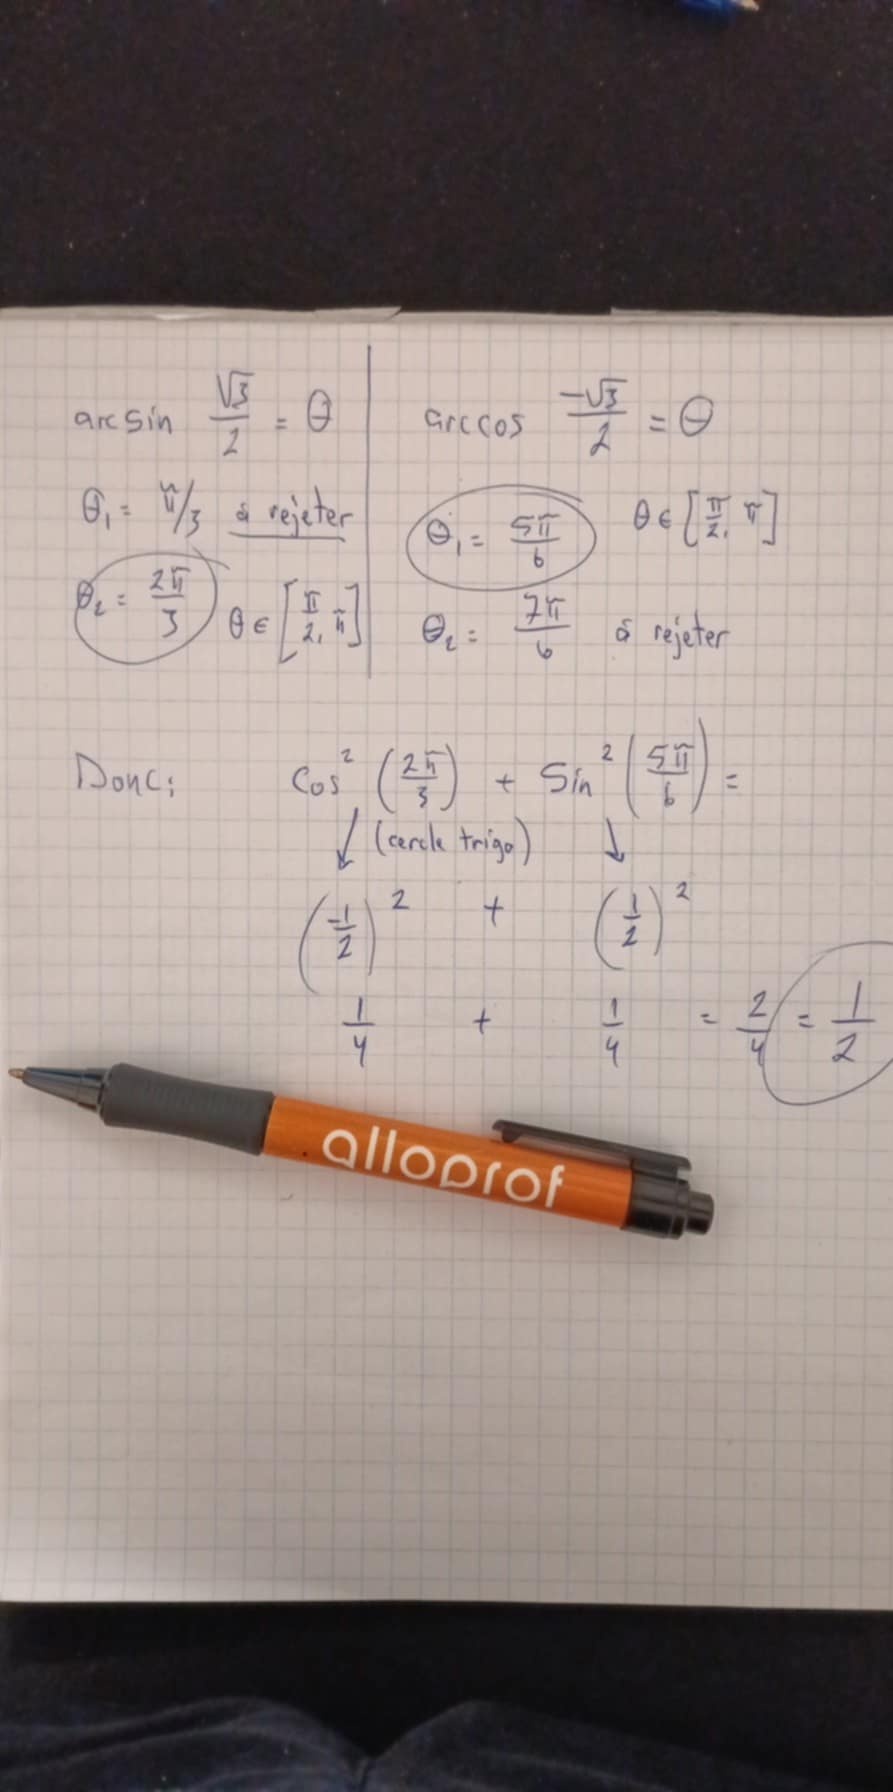 arcsin √3/2 = θ
θ₁ = π/3 à rejeter
θ₂ = 2π/3 θ ∈ [π/2, π]
arccos -√3/2 = θ
θ₁ = 5π/6 θ ∈ [π/2, π]
θ₂ = 7π/6 à rejeter
Donc: cos² (2π/3) + Sin² (5π/6) =
↓ (cercle trigo) ↓
(-1/2)² + (1/2)²
1/4 + 1/4 = 2/4 = 1/2
alloprof